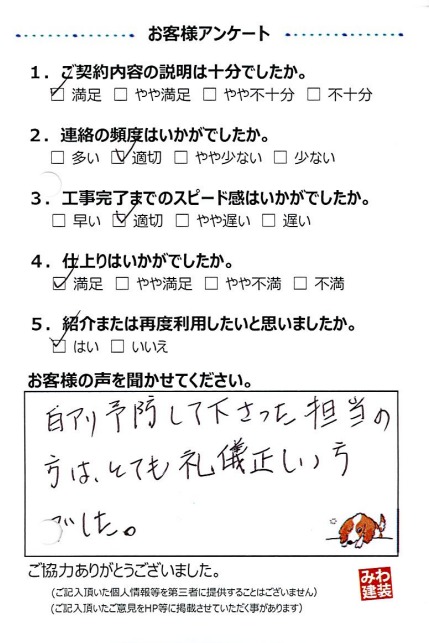 お客様アンケート
１．ご契約内容の説明は十分でしたか。
☑ 満足 □ やや満足 □ やや不十分 □ 不十分
２．連絡の頻度はいかがでしたか。
□ 多い ☑ 適切 □ やや少ない □ 少ない
３．工事完了までのスピード感はいかがでしたか。
□ 早い ☑ 適切 □ やや遅い □ 遅い
４．仕上りはいかがでしたか。
☑ 満足 □ やや満足 □ やや不満 □ 不満
５．紹介または再度利用したいと思いましたか。
☑ はい □ いいえ
お客様の声を聞かせてください。
白アリ予防して下さった担当の
方は、とても礼儀正しい方
でした。
みわ
建装
ご協力ありがとうございました。
(ご記入頂いた個人情報等を第三者に提供することはございません)
(ご記入頂いたご意見をHP等に掲載させていただく事があります)